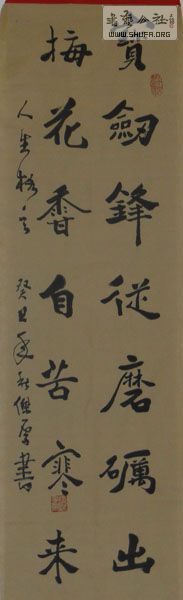 書藝公社
WWW.SHUFA.ORG
寳劔鋒從磨礪出
梅花香自苦寒来
人生格言
癸丑年 書